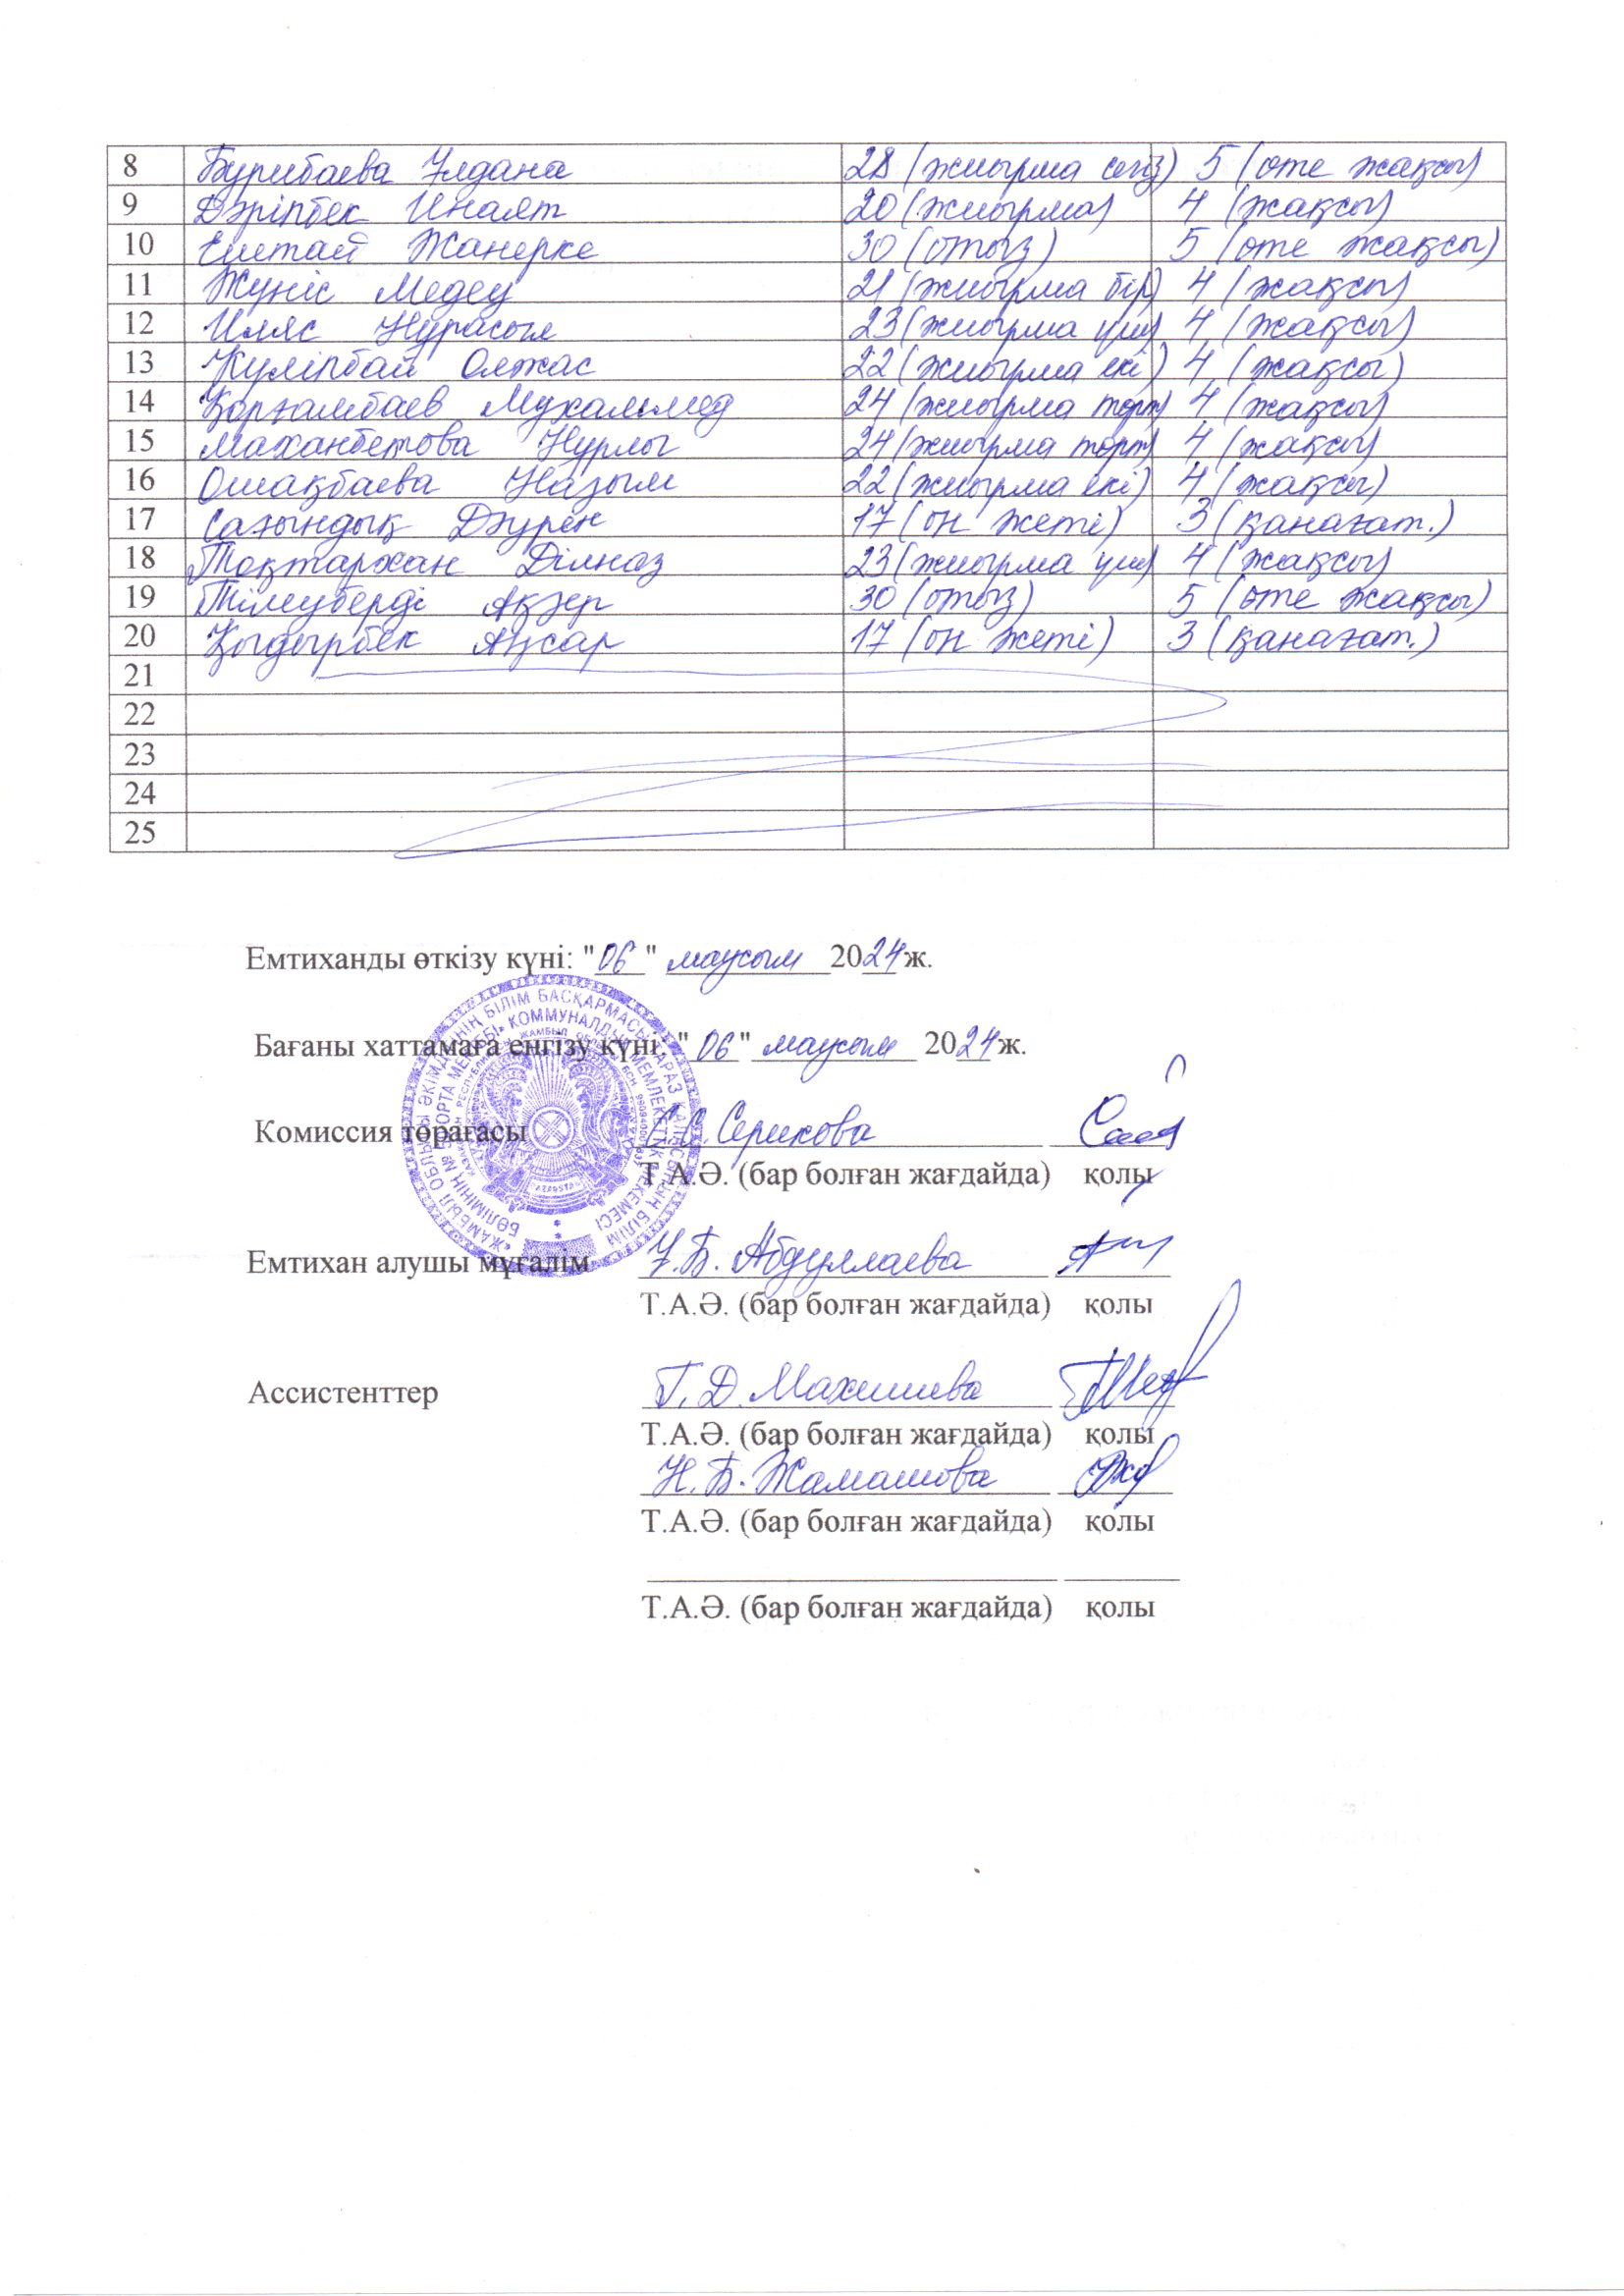 8 Бурибаева Ұлдана 28 (жиырма сегіз) 5 (өте жақсы)
9 Дәріпбек Инаят 20 (жиырма) 4 (жақсы)
10 Ештай Жанерке 30 (отыз) 5 (өте жақсы)
11 Жүніс Медеу 21 (жиырма бір) 4 (жақсы)
12 Илияс Нұрасыл 23 (жиырма үш) 4 (жақсы)
13 Куліпбай Олжас 22 (жиырма екі) 4 (жақсы)
14 Қорғамбаев Мухаммед 24 (жиырма төрт) 4 (жақсы)
15 Маханбетова Нұрлы 24 (жиырма төрт) 4 (жақсы)
16 Ошақбаева Назым 22 (жиырма екі) 4 (жақсы)
17 Сағындық Дәурен 17 (он жеті) 3 (қанағат.)
18 Тоқтархан Ділназ 23 (жиырма үш) 4 (жақсы)
19 Тілеуберді Ақзер 30 (отыз) 5 (өте жақсы)
20 Қыдырбек Аңсар 17 (он жеті) 3 (қанағат.)
21
22
23
24
25
Емтиханды өткізу күні: "06" маусым 2024 ж.
Бағаны хаттамаға енгізу күні: "06" маусым 2024 ж.
Комиссия төрағасы С.С. Серикова
Т.А.Ә. (бар болған жағдайда) қолы
Емтихан алушы мұғалім Ұ.Б. Абдуллаева
Т.А.Ә. (бар болған жағдайда) қолы
Ассистенттер Г.Д. Махишева
Т.А.Ә. (бар болған жағдайда) қолы
Н.Б. Жамашова
Т.А.Ә. (бар болған жағдайда) қолы
Т.А.Ә. (бар болған жағдайда) қолы